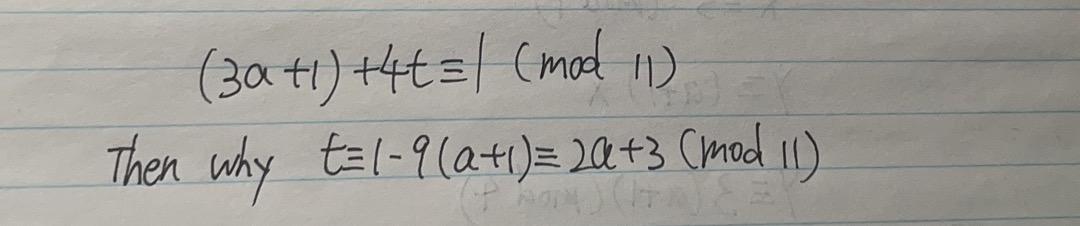 (3a+1)+4t≡1 (mod 11)
Then why t≡1-9(a+1)≡2a+3 (mod 11)